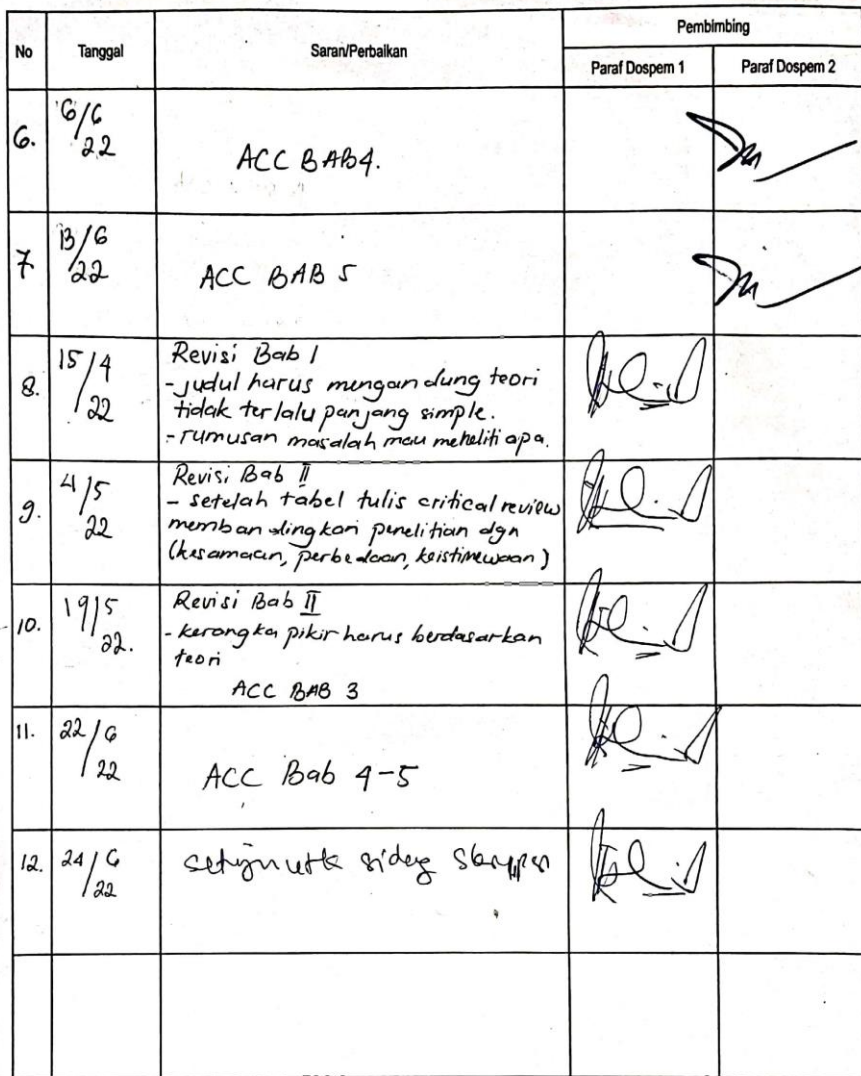 No Tanggal Saran/Perbaikan Pembimbing
Paraf Dospem 1 Paraf Dospem 2
6. 6/6 22 ACC BAB 4.
7 13/6 22 ACC BAB 5
8. 15/4 22 Revisi Bab I
- judul harus mengandung teori
tidak terlalu panjang simple.
- rumusan masalah mau meneliti apa.
9. 4/5 22 Revisi Bab II
- setelah tabel tulis critical review
membandingkan penelitian dgn
(kesamaan, perbedaan, keistimewaan)
10. 19/5 22. Revisi Bab II
- kerangka pikir harus berdasarkan
teori
ACC BAB 3
11. 22/6 22 ACC Bab 4-5
12. 24/6 22 setuju utk sidang skripsi